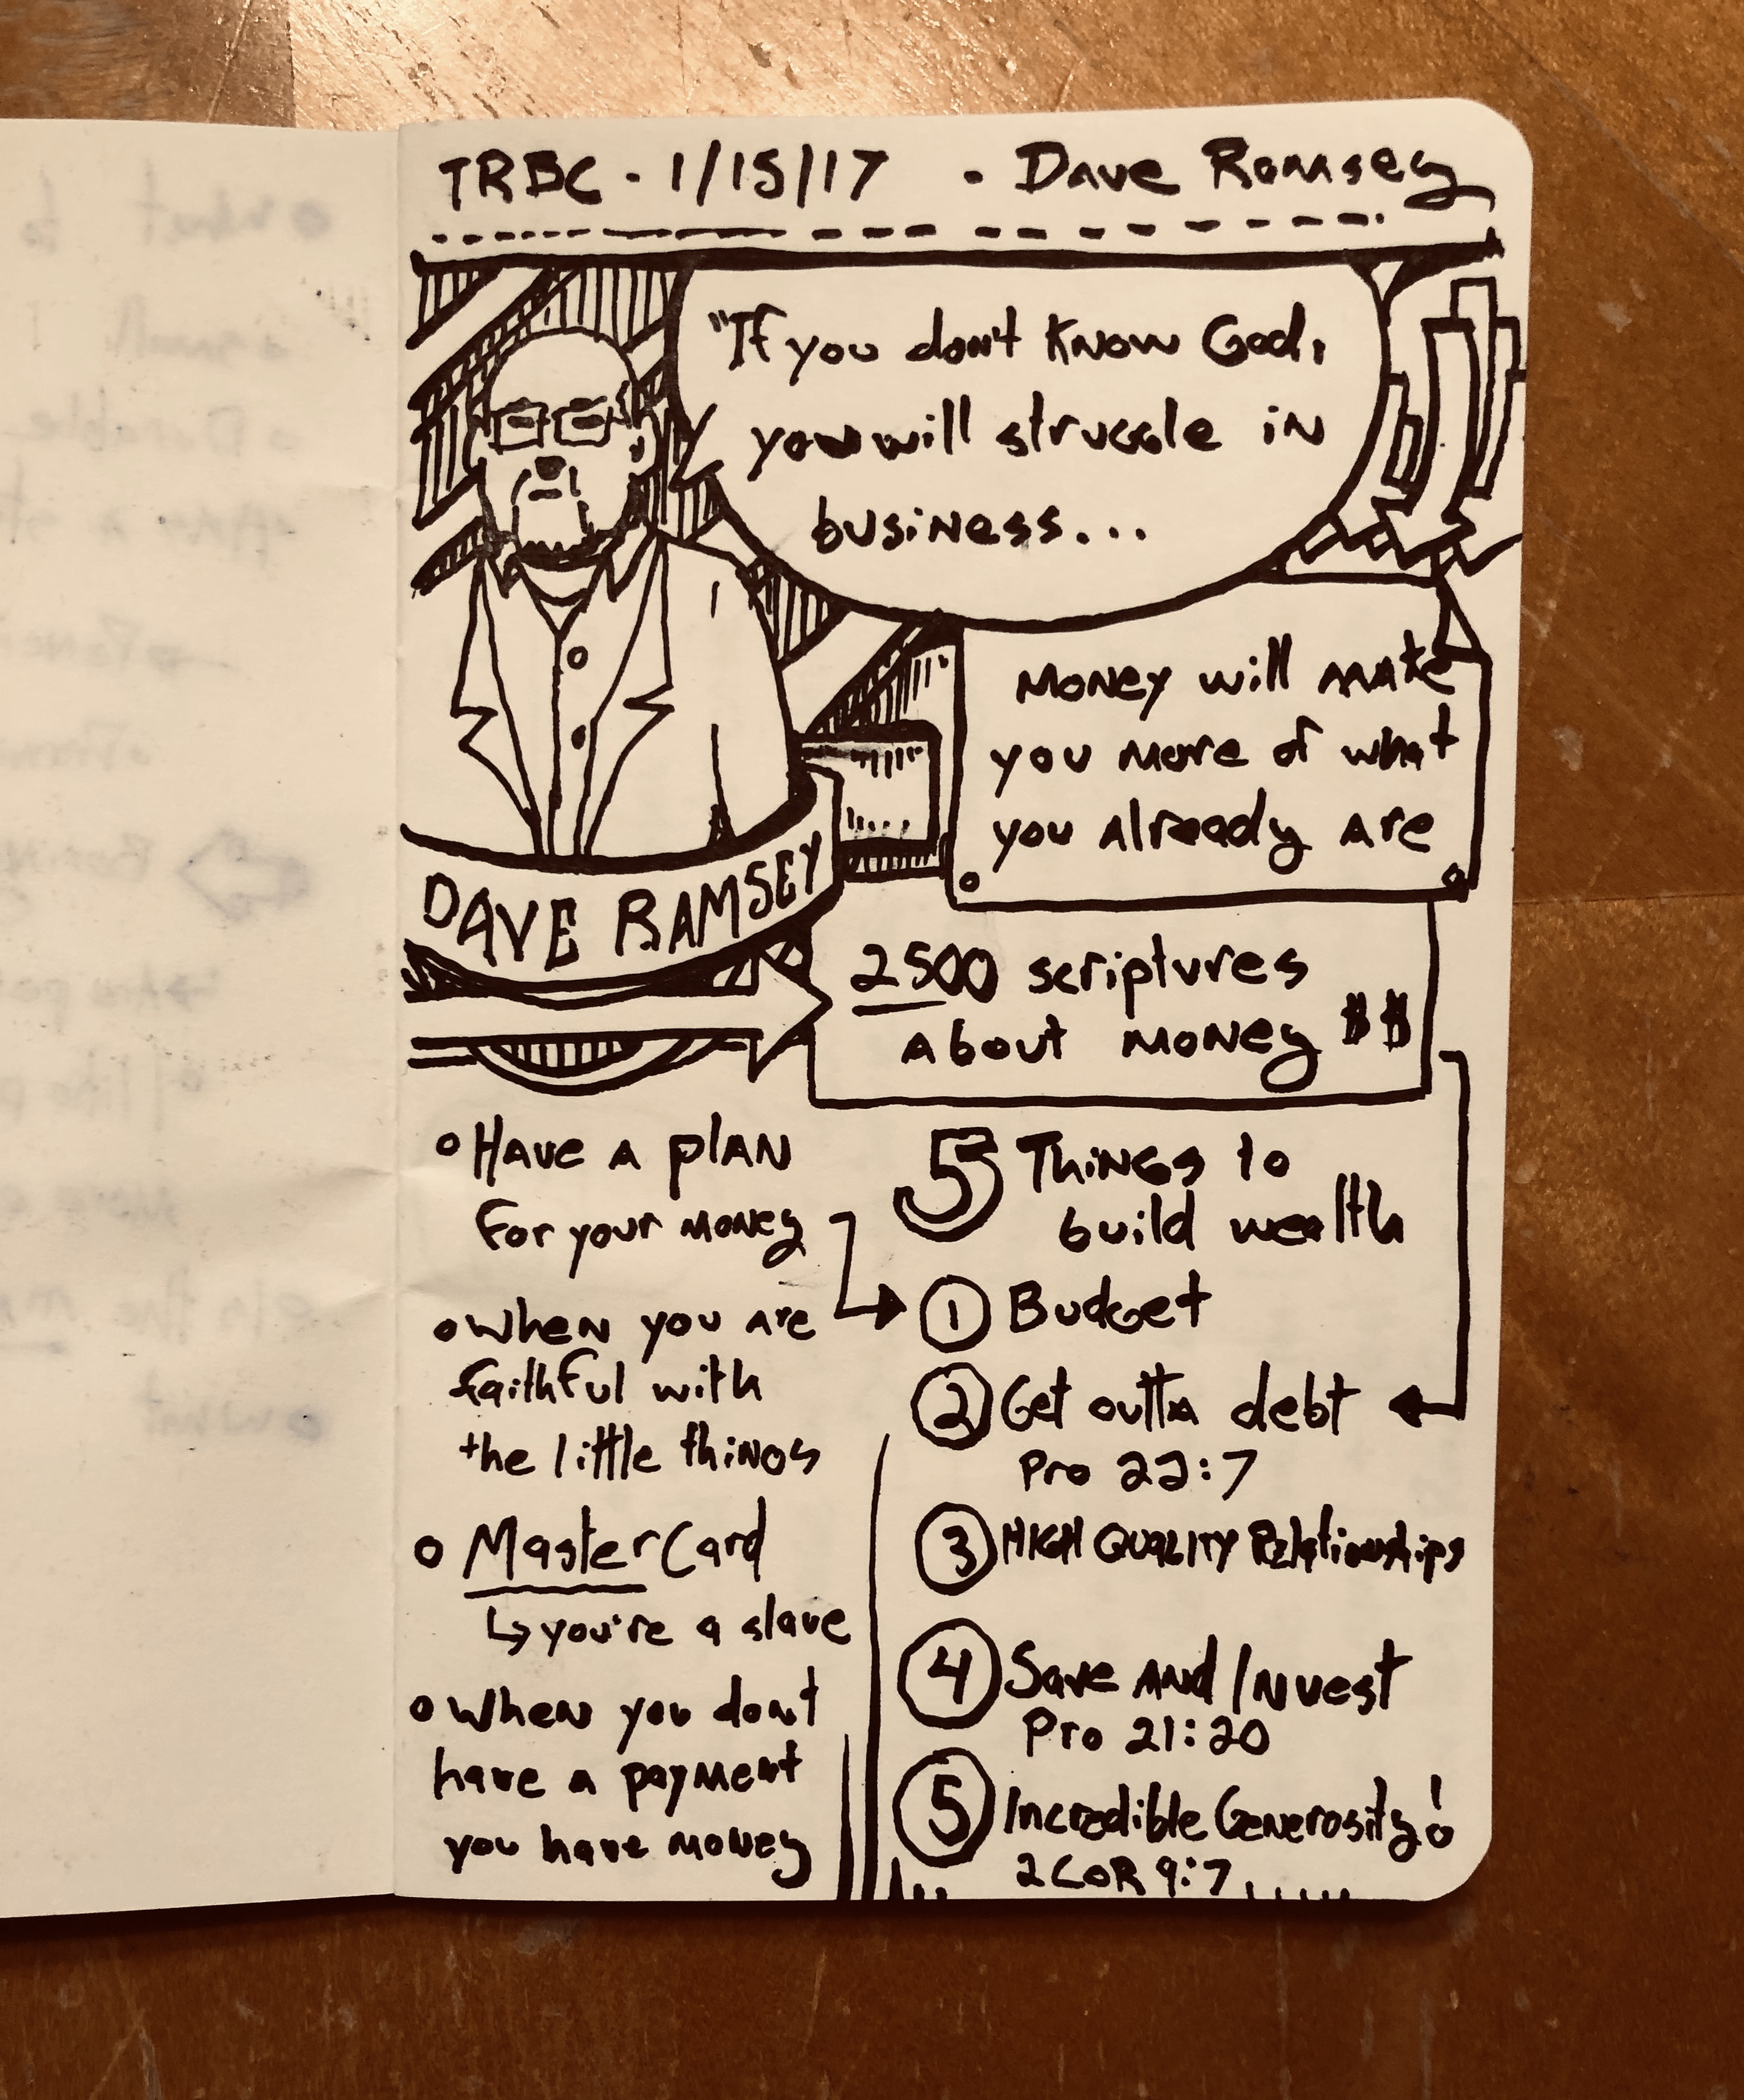 TRBC · 1/15/17 · Dave Ramsey
"If you don't know God,
you will struggle in
business...
Money will make
you more of what
you already are
DAVE RAMSEY
2500 scriptures
about money $$
Have a plan
for your money
When you are
faithful with
the little things
MasterCard
↳ you're a slave
When you don't
have a payment
you have money
5 Things to
build wealth
1 Budget
2 Get outta debt
Pro 22:7
3 HIGH QUALITY Relationships
4 Save and Invest
Pro 21:20
5 Incredible Generosity!
2 COR 9:7